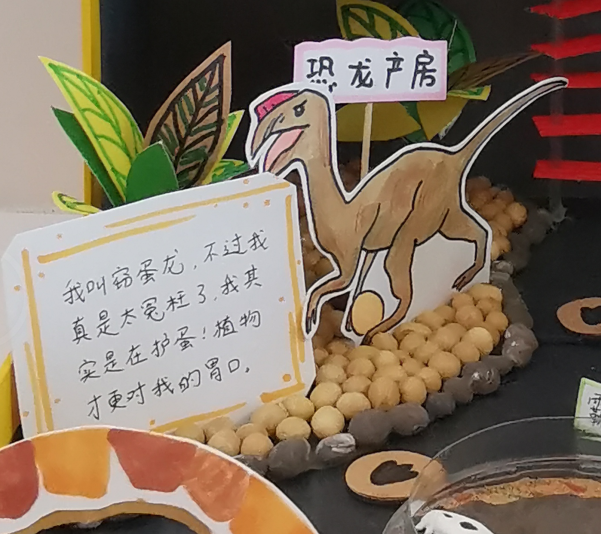 恐龙产房
我叫窃蛋龙,不过我
真是太冤枉了,我其
实是在护蛋!植物
才更对我的胃口。